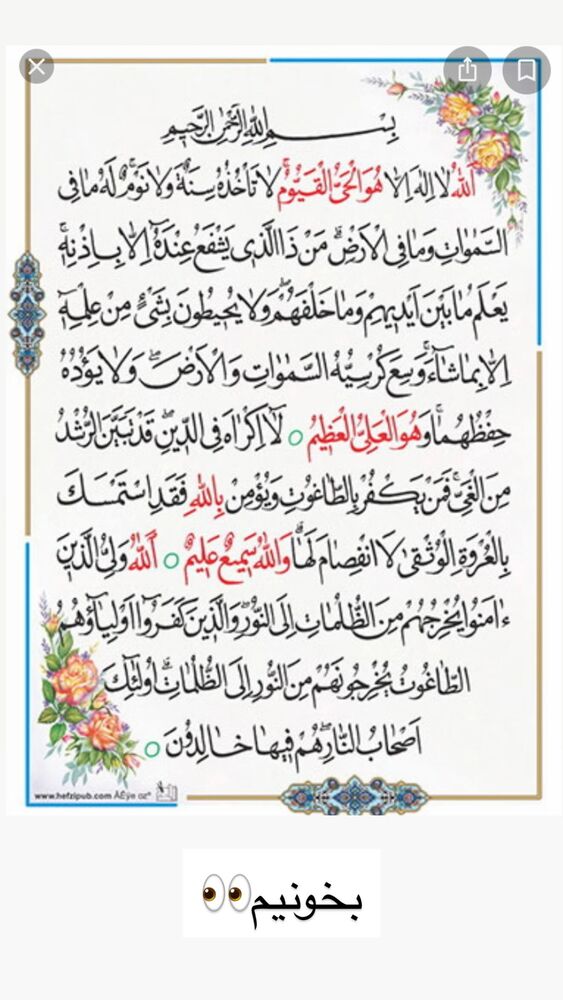 بِسْمِ اللهِ الرَّحْمٰنِ الرَّحِیمِ
اَللهُ لا اِلٰهَ اِلّا هُوَ الْحَیُّ الْقَیُّومُ لا تَأْخُذُهُ سِنَةٌ وَلا نَوْمٌ لَهُ ما فِی
السَّمٰوٰاتِ وَما فِی الْاَرْضِ مَنْ ذَا الَّذی یَشْفَعُ عِنْدَهُ اِلّا بِاِذْنِهِ
یَعْلَمُ ما بَیْنَ اَیْدیهِمْ وَما خَلْفَهُمْ وَلا یُحیطُونَ بِشَیْءٍ مِنْ عِلْمِهِ
اِلّا بِما شاءَ وَسِعَ کُرْسِیُّهُ السَّمٰوٰاتِ وَالْاَرْضَ وَلا یَؤُدُهُ
حِفْظُهُما وَهُوَ الْعَلِیُّ الْعَظیمُ لا اِکْراهَ فِی الدِّینِ قَدْ تَبَیَّنَ الرُّشْدُ
مِنَ الْغَیِّ فَمَنْ یَکْفُرْ بِالطّاغُوتِ وَیُؤْمِنْ بِاللهِ فَقَدِ اسْتَمْسَکَ
بِالْعُرْوَةِ الْوُثْقیٰ لَا انْفِصامَ لَها وَاللهُ سَمیعٌ عَلیمٌ اَللهُ وَلِیُّ الَّذینَ
ءٰامَنُوا یُخْرِجُهُمْ مِنَ الظُّلُماتِ اِلَی النُّورِ وَالَّذینَ کَفَرُوا اَوْلِیاؤُهُمُ
الطّاغُوتُ یُخْرِجُونَهُمْ مِنَ النُّورِ اِلَی الظُّلُماتِ اُولٰئِکَ
اَصْحابُ النّارِ هُمْ فیها خالِدُونَ
www.hefzipub.com
بخونیم👀